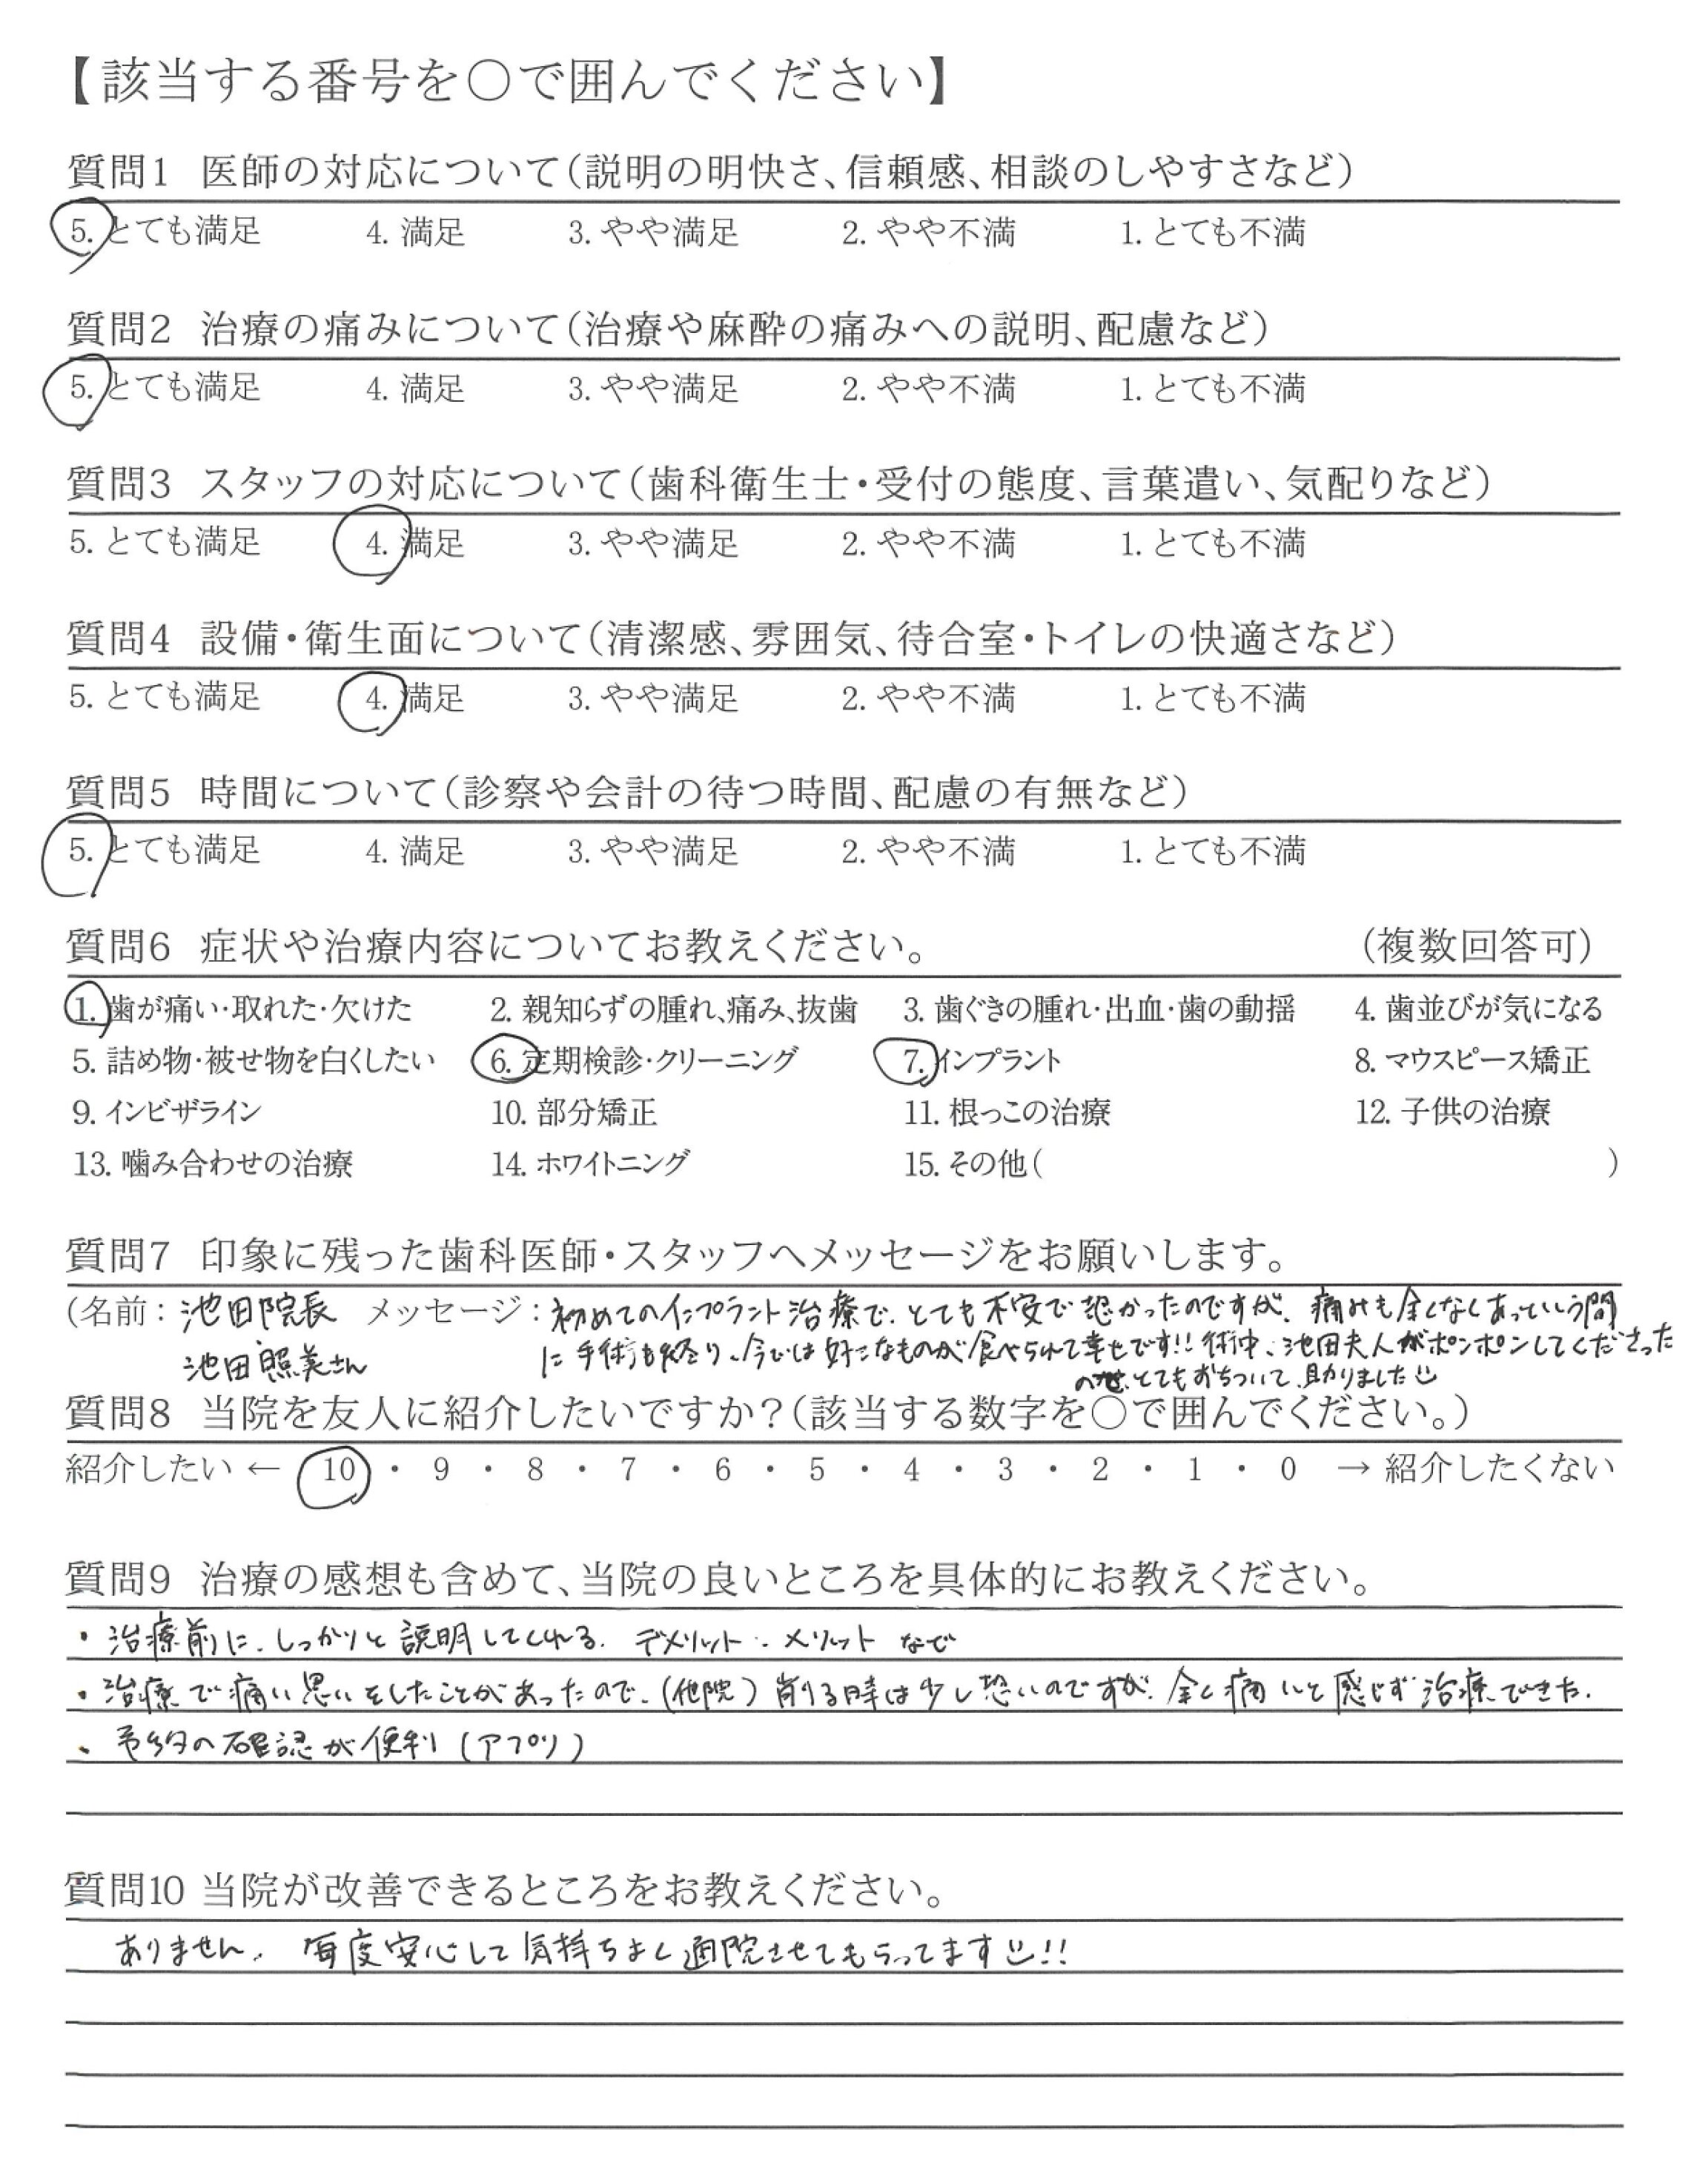 【該当する番号を○で囲んでください】
質問1 医師の対応について(説明の明快さ、信頼感、相談のしやすさなど)
5. とても満足 4. 満足 3. やや満足 2. やや不満 1. とても不満
質問2 治療の痛みについて(治療や麻酔の痛みへの説明、配慮など)
5. とても満足 4. 満足 3. やや満足 2. やや不満 1. とても不満
質問3 スタッフの対応について(歯科衛生士・受付の態度、言葉遣い、気配りなど)
5. とても満足 4. 満足 3. やや満足 2. やや不満 1. とても不満
質問4 設備・衛生面について(清潔感、雰囲気、待合室・トイレの快適さなど)
5. とても満足 4. 満足 3. やや満足 2. やや不満 1. とても不満
質問5 時間について(診察や会計の待つ時間、配慮の有無など)
5. とても満足 4. 満足 3. やや満足 2. やや不満 1. とても不満
質問6 症状や治療内容についてお教えください。 (複数回答可)
1. 歯が痛い・取れた・欠けた 2. 親知らずの腫れ、痛み、抜歯 3. 歯ぐきの腫れ・出血・歯の動揺 4. 歯並びが気になる
5. 詰め物・被せ物を白くしたい 6. 定期検診・クリーニング 7. インプラント 8. マウスピース矯正
9. インビザライン 10. 部分矯正 11. 根っこの治療 12. 子供の治療
13. 噛み合わせの治療 14. ホワイトニング 15. その他( )
質問7 印象に残った歯科医師・スタッフへメッセージをお願いします。
(名前: 池田院長 メッセージ: 初めてのインプラント治療で、とても不安で恐かったのですが、痛みも全くなくあっという間
池田照美さん に手術も終り、今では好きなものが食べられて幸せです!! 術中、池田夫人がポンポンしてくださった
の世、とてもおちついて、助かりました
質問8 当院を友人に紹介したいですか?(該当する数字を○で囲んでください。)
紹介したい ← 10 ・ 9 ・ 8 ・ 7 ・ 6 ・ 5 ・ 4 ・ 3 ・ 2 ・ 1 ・ 0 → 紹介したくない
質問9 治療の感想も含めて、当院の良いところを具体的にお教えください。
・治療前に、しっかりと説明してくれる。デメリット・メリットなど
・治療で痛い思いをしたことがあったので、(他院) 削る時は少し恐いのですが、全く痛いと感じず治療できた。
・予約の確認が便利(アプリ)
質問10 当院が改善できるところをお教えください。
ありません。 毎度安心して気持ちよく通院させてもらってます!!